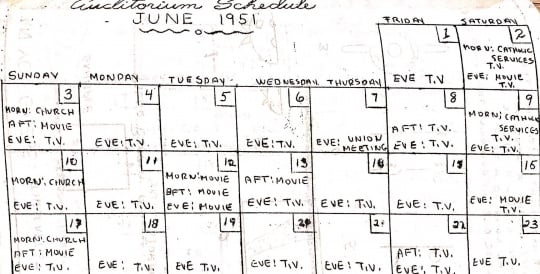 Auditorium Schedule
JUNE 1951
FRIDAY SATURDAY
1 2
MORN: CATHLIC
SERVICES
T.V.
EVE T.V EVE: MOVIE
T.V.
SUNDAY MONDAY TUESDAY WEDNESDAY THURSDAY
3 4 5 6 7 8 9
MORN: CHURCH
AFT: MOVIE
EVE: T.V.
EVE: T.V.
EVE: T.V.
EVE: T.V.
EVE: UNION
MEETING
AFT: T.V.
EVE: T.V.
MORN: CATHLIC
SERVICES
T.V.
EVE: T.V.
10 11 12 13 14 15
MORN: CHURCH
EVE: T.V.
EVE: T.V.
MORN: MOVIE
AFT: MOVIE
EVE: MOVIE
AFT: MOVIE
EVE: T.V.
EVE: T.V.
EVE: T.V.
EVE: MOVIE
T.V.
17 18 19 20 21 22 23
MORN: CHURCH
AFT: MOVIE
EVE: T.V.
EVE: T.V.
EVE T.V.
EVE T.V.
EVE: T.V.
AFT: T.V.
EVE: T.V.
EVE T.V.